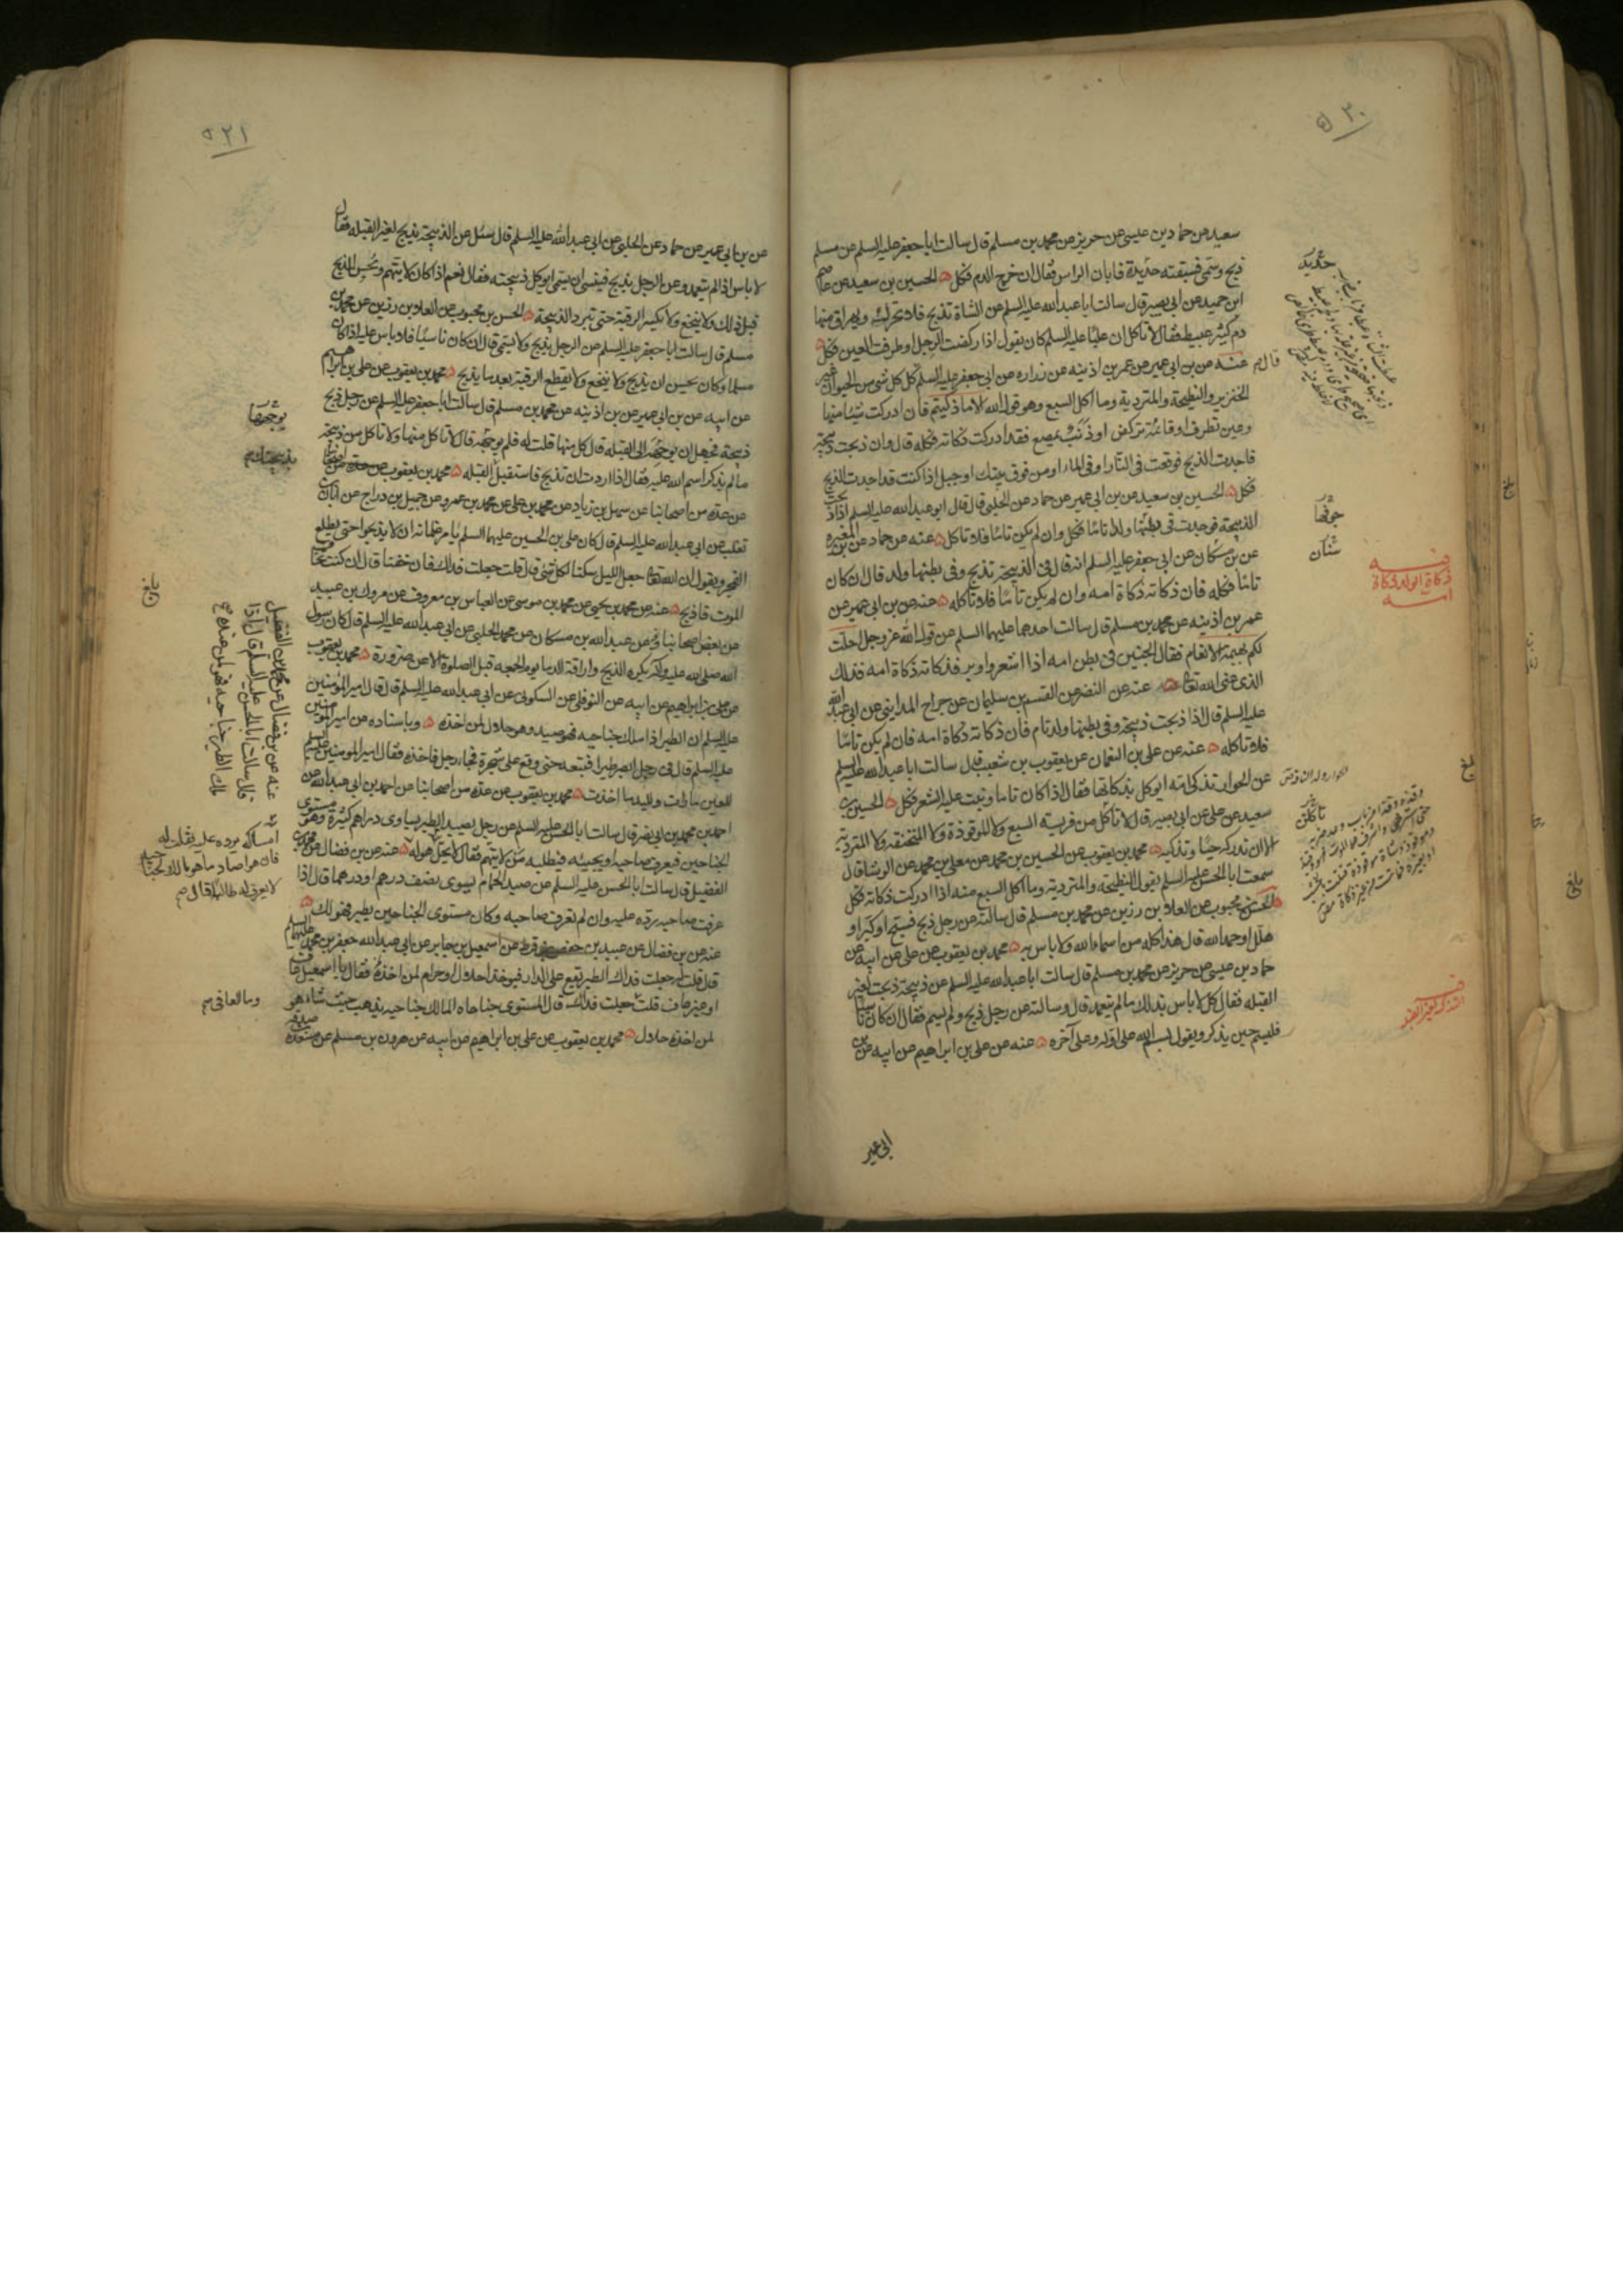 ٥٢٠
سعيد عن حماد بن عيسى عن حريز عن محمد بن مسلم قال سالت ابا جعفر عليه السلم عن مسلم
ذبح وسمى فسبقته حديدة فابان الراس فقال ان خرج الدم فكل الحسين بن سعيد عن عاصم
ابن حميد عن ابى بصير قال سالت ابا عبد الله عليه السلم عن الشاة تذبح فلا تتحرك ويهراق منها
دم كثير عبيط فقال لا تاكل ان عليا عليه السلم كان يقول اذا ركضت الرجل او طرفت العين فكل
عنه عن بن ابى عمير عن عمر بن اذينه عن زراره عن ابى جعفر عليه السلم كل كل شى من الحيوان غير
الخنزير والنطيحة والمتردية وما اكل السبع وهو قول الله الا ما ذكيتم فان ادركت شيئا منها
وعين تطرف او قائمة تركض او ذنب يمصع فقد ادركت ذكاته فكله قال وان ذبحت ذبيحة
فاجدت الذبح فوقعت فى النار او فى الماء او من فوق بيتك او جبل اذا كنت قد اجدت الذبح
فكل الحسين بن سعيد عن بن ابى عمير عن حماد عن الحلبى قال قال ابو عبد الله عليه السلم اذا ذبحت
الذبيحة فوجدت فى بطنها ولدا تاما فكل وان لم يكن تاما فلا تاكل عنه عن حماد عن بن المغيره
عن بن مسكان عن ابى جعفر عليه السلم انه قال فى الذبيحة تذبح وفى بطنها ولد قال ان كان
تاما فكله فان ذكاته ذكاة امه وان لم يكن تاما فلا تاكله عنه عن بن ابى عمير عن
عمر بن اذينه عن محمد بن مسلم قال سالت احدهما عليهما السلم عن قول الله عز وجل احلت
لكم بهيمة الانعام فقال الجنين فى بطن امه اذا اشعر واوبر فذكاته ذكاة امه فذلك
الذى عنى الله تعالى عنه عن النضر عن القسم بن سليمان عن جراح المداينى عن ابى عبد الله
عليه السلم قال اذا ذبحت ذبيحة وفى بطنها ولد تام فان ذكاته ذكاة امه فان لم يكن تاما
فلا تاكله عنه عن على بن النعمان عن يعقوب بن شعيب قال سالت ابا عبد الله عليه السلم
عن الحوار تذكى امه ايوكل بذكاتها فقال اذا كان تاما ونبت عليه الشعر فكل الحسين بن
سعيد عن على عن ابى بصير قال لا تاكل من فريسة السبع ولا الموقوذة ولا المنخنقه ولا المترديه
الا ان تدركه حيا وتذكيه محمد بن يعقوب عن الحسين بن محمد عن معلى بن محمد عن الوشا قال
سمعت ابا الحسن عليه السلم يقول النطيحة والمتردية وما اكل السبع منه اذا ادركت ذكاته فكل
الحسن بن محبوب عن العلا بن رزين عن محمد بن مسلم قال سالته عن رجل ذبح فسبح او كبر او
هلل او حمد الله قال هذا كله من اسماء الله ولا باس به محمد بن يعقوب عن على عن ابيه عن
حماد بن عيسى عن حريز عن محمد بن مسلم قال سالت ابا عبد الله عليه السلم عن ذبيحة ذبحت لغير
القبله فقال كل لا باس بذلك ما لم يتعمد قال وسالته عن رجل ذبح ولم يسم فقال ان كان ناسيا
فليسم حين يذكر ويقول بسم الله على اوله وعلى آخره عنه عن على بن ابراهيم عن ابيه عن بن
ابى عمير
حديدة
قال
جوفها
سنان
ذكاة الولد ذكاة
امه
الحوار ولد الناقة
تاكلن
بلغ
بلغ
بلغ
٥٢١
عن بن ابى عمير عن حماد عن الحلبى عن ابى عبد الله عليه السلم قال سئل عن الذبيحة تذبح لغير القبله فقال
لا باس اذا لم يتعمد وعن الرجل يذبح فينسى ان يسمى ايوكل ذبيحته فقال نعم اذا كان لا يتهم ويحسن الذبح
قبل ذلك ولا ينخع ولا يكسر الرقبة حتى تبرد الذبيحة الحسن بن محبوب عن العلا بن رزين عن محمد بن
مسلم قال سالت ابا جعفر عليه السلم عن الرجل يذبح ولا يسمى قال ان كان ناسيا فلا باس عليه اذا كان
مسلما وكان يحسن ان يذبح ولا ينخع ولا يقطع الرقبة بعد ما يذبح محمد بن يعقوب عن على بن ابراهيم
عن ابيه عن بن ابى عمير عن بن اذينه عن محمد بن مسلم قال سالت ابا جعفر عليه السلم عن رجل ذبح
ذبيحة فجهل ان يوجهها الى القبله قال كل منها قلت له فلم يوجهه قال لا تاكل منها ولا تاكل من ذبيحة
ما لم يذكر اسم الله عليه وقال اذا اردت ان تذبح فاستقبل القبله محمد بن يعقوب
عن عدة من اصحابنا عن سهل بن زياد عن محمد بن على عن محمد بن عمرو عن جميل بن دراج عن ابان بن
تغلب عن ابى عبد الله عليه السلم قال كان على بن الحسين عليهما السلم يامر غلمانه ان لا يذبحوا حتى يطلع
الفجر ويقول ان الله تعالى جعل الليل سكنا لكل شى قال قلت جعلت فداك فان خفنا قال ان كنت تخاف
الموت فاذبح عنه عن محمد بن يحيى عن محمد بن موسى عن العباس بن معروف عن مروك بن عبيد
عن بعض اصحابنا عن عبد الله بن مسكان عن محمد الحلبى عن ابى عبد الله عليه السلم قال كان رسول
الله صلى الله عليه وآله يكره الذبح واراقة الدما يوم الجمعه قبل الصلوة الا عن ضرورة محمد بن يعقوب
عن على بن ابراهيم عن ابيه عن النوفلى عن السكونى عن ابى عبد الله عليه السلم قال قال امير المؤمنين
عليه السلم ان الطير اذا ملك جناحيه فهو صيد وهو حلال لمن اخذه وباسناده عن امير المومنين
عليه السلم قال فى رجل ابصر طيرا فتبعه حتى وقع على شجرة فجاء رجل فاخذه فقال امير المومنين عليه السلم
للعين ما رات ولليد ما اخذت محمد بن يعقوب عن عدة من اصحابنا عن احمد بن ابى عبد الله عن
احمد بن محمد بن ابى نصر قال سالت ابا الحسن عليه السلم عن رجل يصيد الطير يساوى دراهم كثيرة وهو مستوى
الجناحين فيعرف صاحبه او يجيئه فيطلبه من لا يتهم فقال لا يحل له عنه عن بن فضال عن محمد بن
الفضيل قال سالت ابا الحسن عليه السلم عن صيد الحمام يسوى نصف درهم او درهما قال اذا
عرفت صاحبه فرده عليه وان لم تعرف صاحبه وكان مستوى الجناحين يطير فهو لك
عنه عن بن فضال عن عبيد بن حفص بن قرط عن اسمعيل بن جابر عن ابى عبد الله جعفر بن محمد عليهما السلم
قال قلت له جعلت فداك الطير يقع على الدار فيوخذ احلال او حرام لمن اخذه فقال يا اسمعيل عاف
او غير عاف قلت جعلت فداك قال المستوى جناحاه المالك جناحيه يذهب حيث شاء هو
لمن اخذه حلال محمد بن يعقوب عن على بن ابراهيم عن ابيه عن هرون بن مسلم عن مسعدة
يوجهها
بلغ
عنه عن بن فضال عن محمد بن الفضيل
قال سالت ابا الحسن عليه السلم قال اذا
ملك الطير جناحيه فهو لمن اخذه
امساكه يرده عليه فقلت له
فان هو اصاد ما هو مالك لجناحيه
لا يعرف له طالبا قال
وما العافى